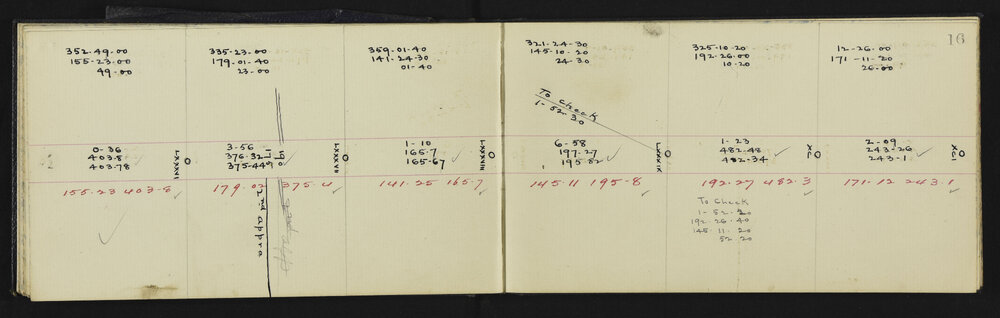 16
352-49-00
155-23-00
49-00
335-23-00
179-01-40
23-00
359-01-40
141-24-30
01-40
321-24-30
145-10-20
24-30
325-10-20
192-26-00
10-20
12-26-00
171-11-20
26-00
To check
1-52-30
0-36
403-8
403-78
LXXXVI
3-56
376-32
375-449
LXXXVII
1-10
166-7
165-67
LXXXVIII
6-58
197-27
195-82
LXXXIX
1-23
482-48
482-34
XC
2-09
243-26
243-1
XCI
155-23 403-8
179-02 375-4
141-25 165-7
145-11 195-8
192-27 482-3
171-12 243-1
2nd appra
To Check
1-52-20
192-26-40
145-11-20
52-20